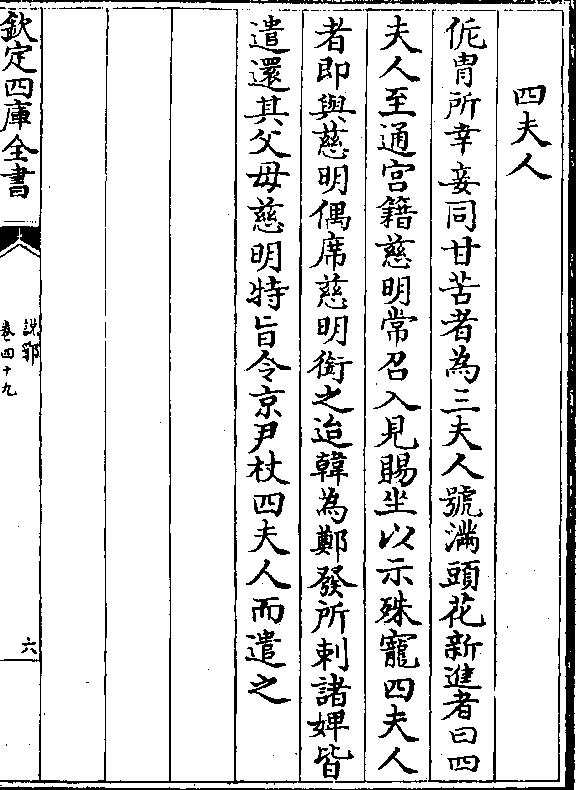 四夫人
侂胄所幸妾同甘苦者為三夫人號滿頭花新進者曰四
夫人至通宫籍慈明常召入見賜坐以示殊寵四夫人
者即與慈明偶席慈明銜之迨韓為鄭發所刺諸婢皆
遣還其父母慈明特旨令京尹杖四夫人而遣之
欽定四庫全書
說郛
卷四十九
六